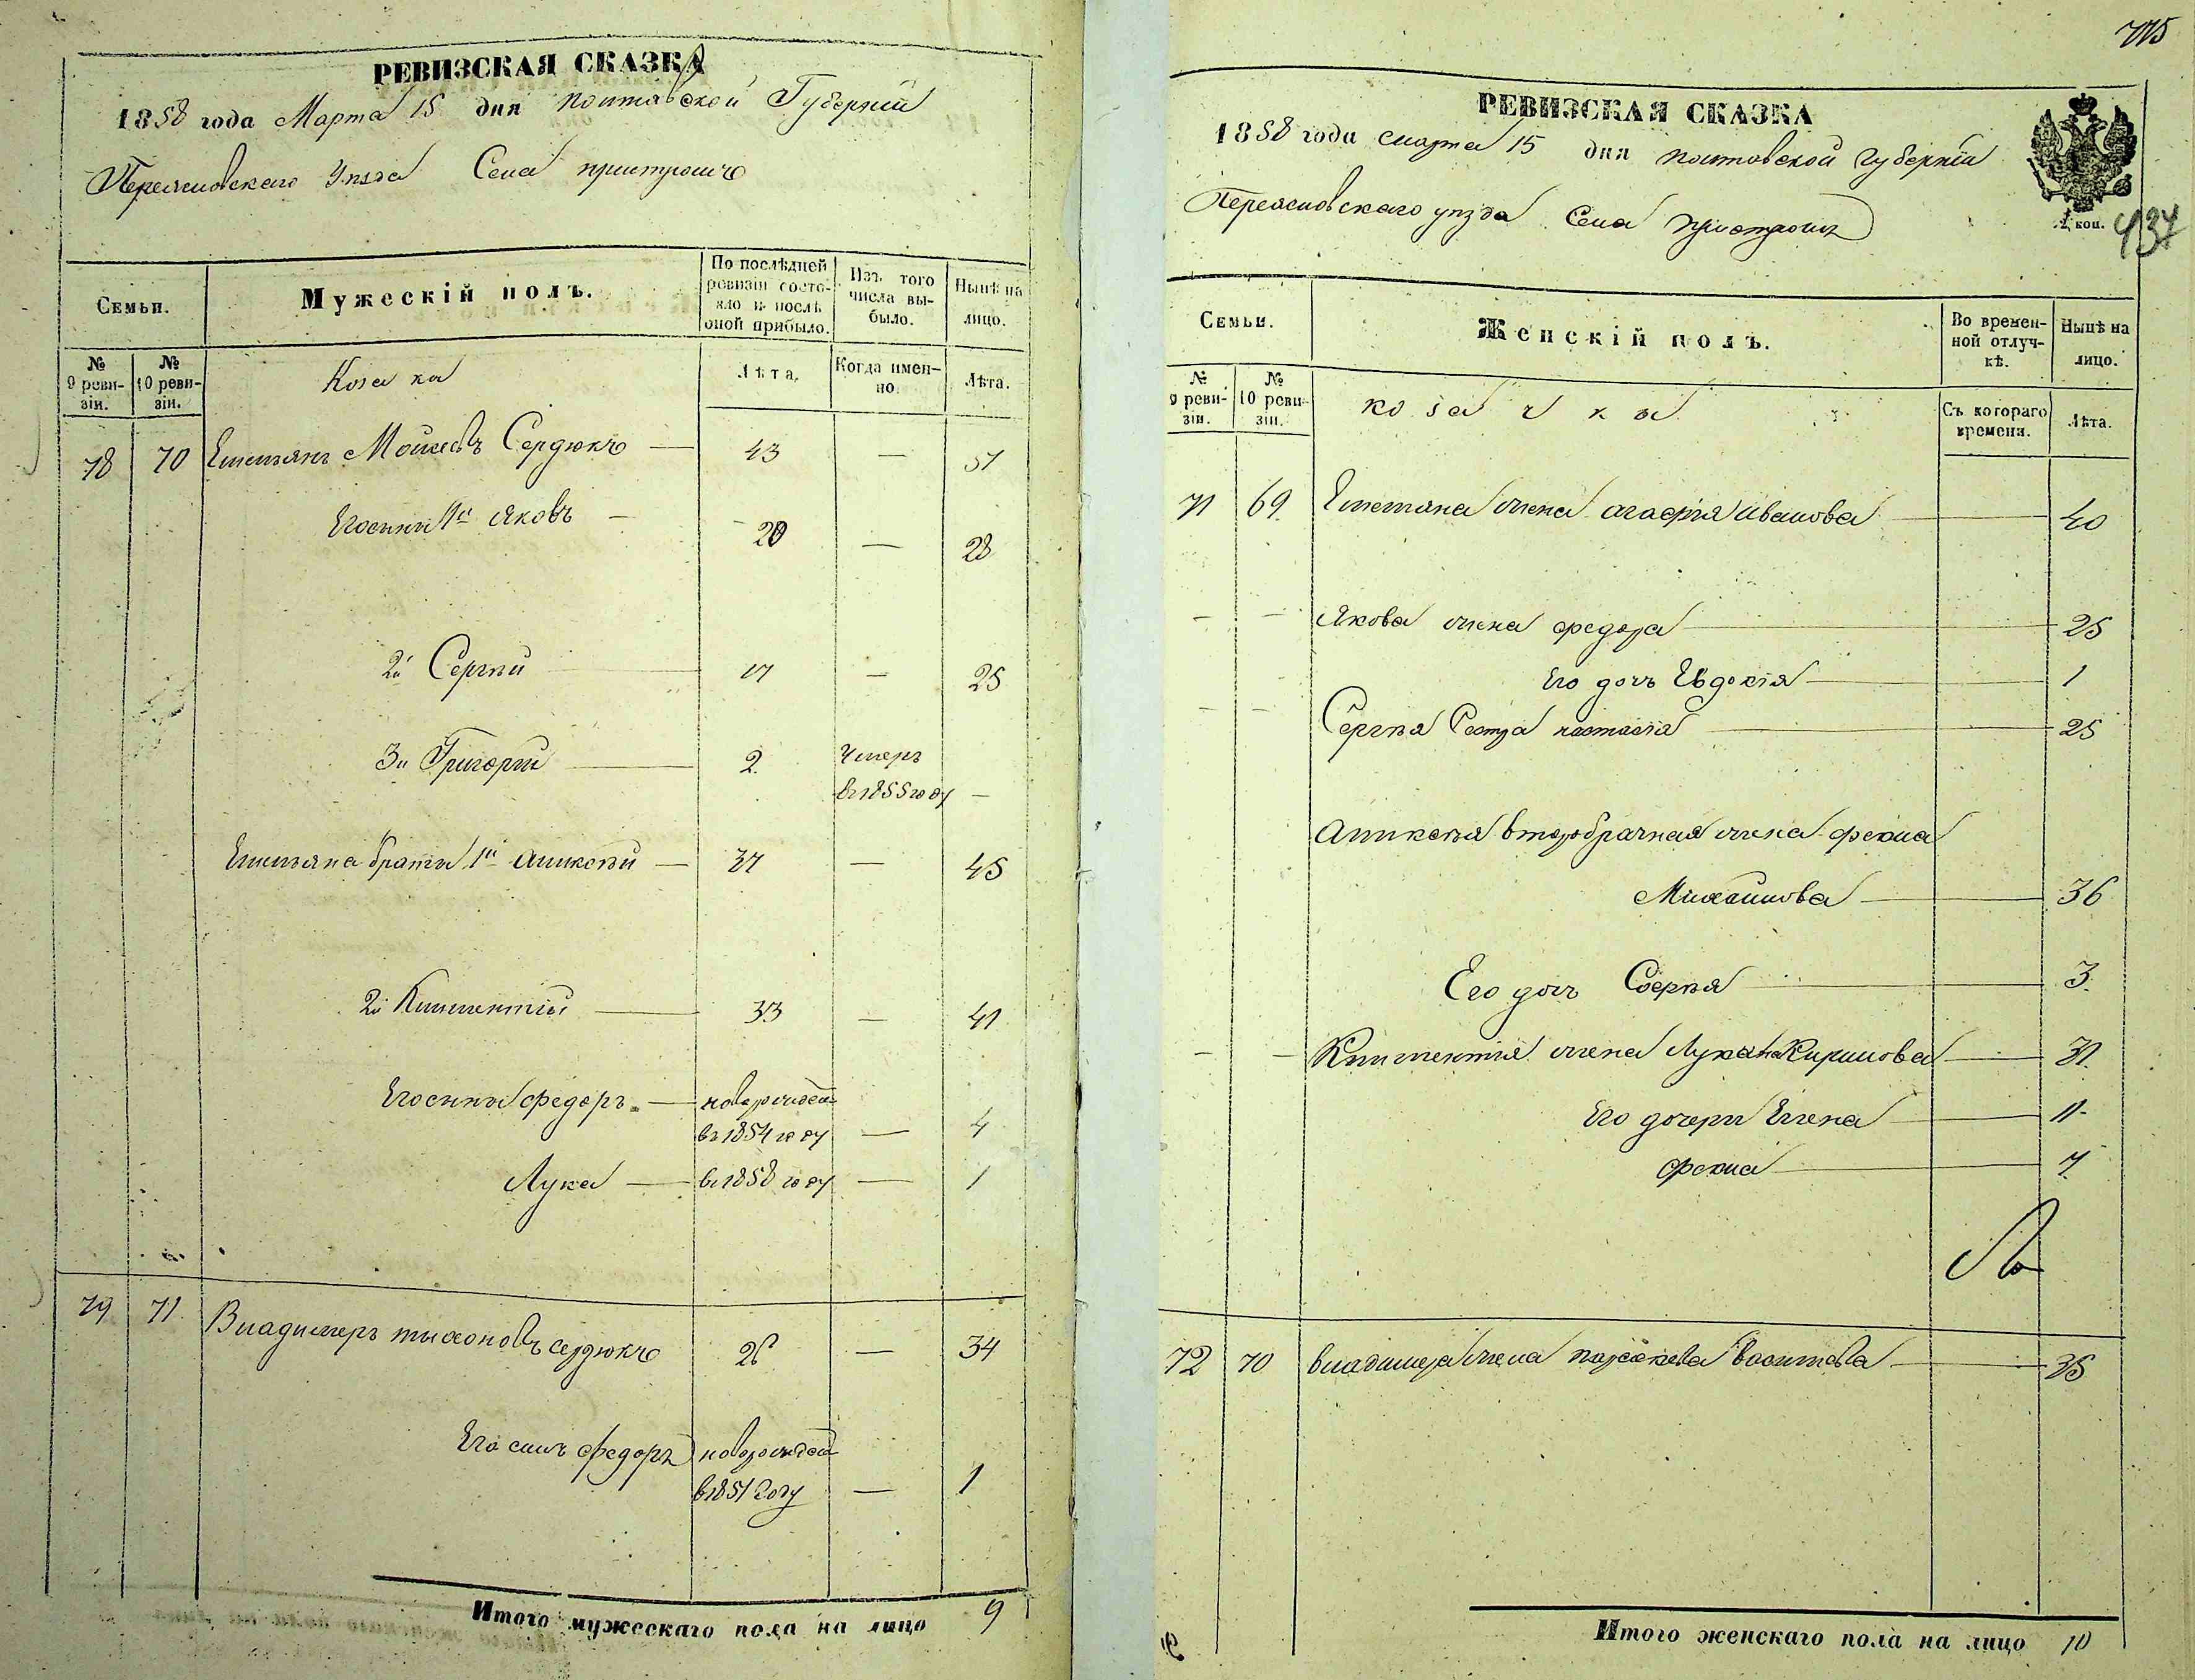 РЕВИЗСКАЯ СКАЗКА
1858 года Марта 15 дня Полтавской Губернии
Переяславского Уѣзда Села Пристромъ
Семьи.
Мужескій полъ.
По послѣдней ревизіи состояло и послѣ оной прибыло.
Изъ того числа выбыло.
Нынѣ на лицо.
№ 9 ревизіи.
№ 10 ревизіи.
Козака
Лѣта.
Когда именно.
Лѣта.
78 70 Емельянъ Моисеевъ Сердюкъ — 43 — 51
Его сыны 1й Яковъ — 20 — 28
2й Сергѣй — 17 — 25
3й Григорій — 2 Умеръ
въ 1855 году —
Емельяна браты 1й Алексѣй — 37 — 45
2й Климентій — 33 — 41
Его сыны Федоръ — новорожден
въ 1854 году — 4
Лука — въ 1858 году — 1
79 71 Владимеръ Тихоновъ Сердюкъ 26 — 34
Его сынъ Федоръ новорожден
в 1857 году — 1
Итого мужескаго пола на лицо 9
715
РЕВИЗСКАЯ СКАЗКА
1858 года марта 15 дня полтавской губерніи
Переяславского уѣзда Села Пристромъ
коп.
434
Семьи.
Женскій полъ.
Во временной отлучкѣ.
Нынѣ на лицо.
№ 9 ревизіи.
№ 10 ревизіи.
козачки
Съ котораго времени.
Лѣта.
71 69 Емельяна жена Агафія Иванова — 40
— — Якова жена Федора — 25
Его дочь Евдокія — 1
— — Сергѣя Сестра настасія — 25
Алексѣя второбрачная жена Фекла
Михайлова — 36
Его дочь Софія — 3
— — Климентія жена Лукія Кирилова — 31
Его дочери Елена — 11
Фекла — 7
72 70 владимера жена параскева васильева — 35
Итого женскаго пола на лицо 10